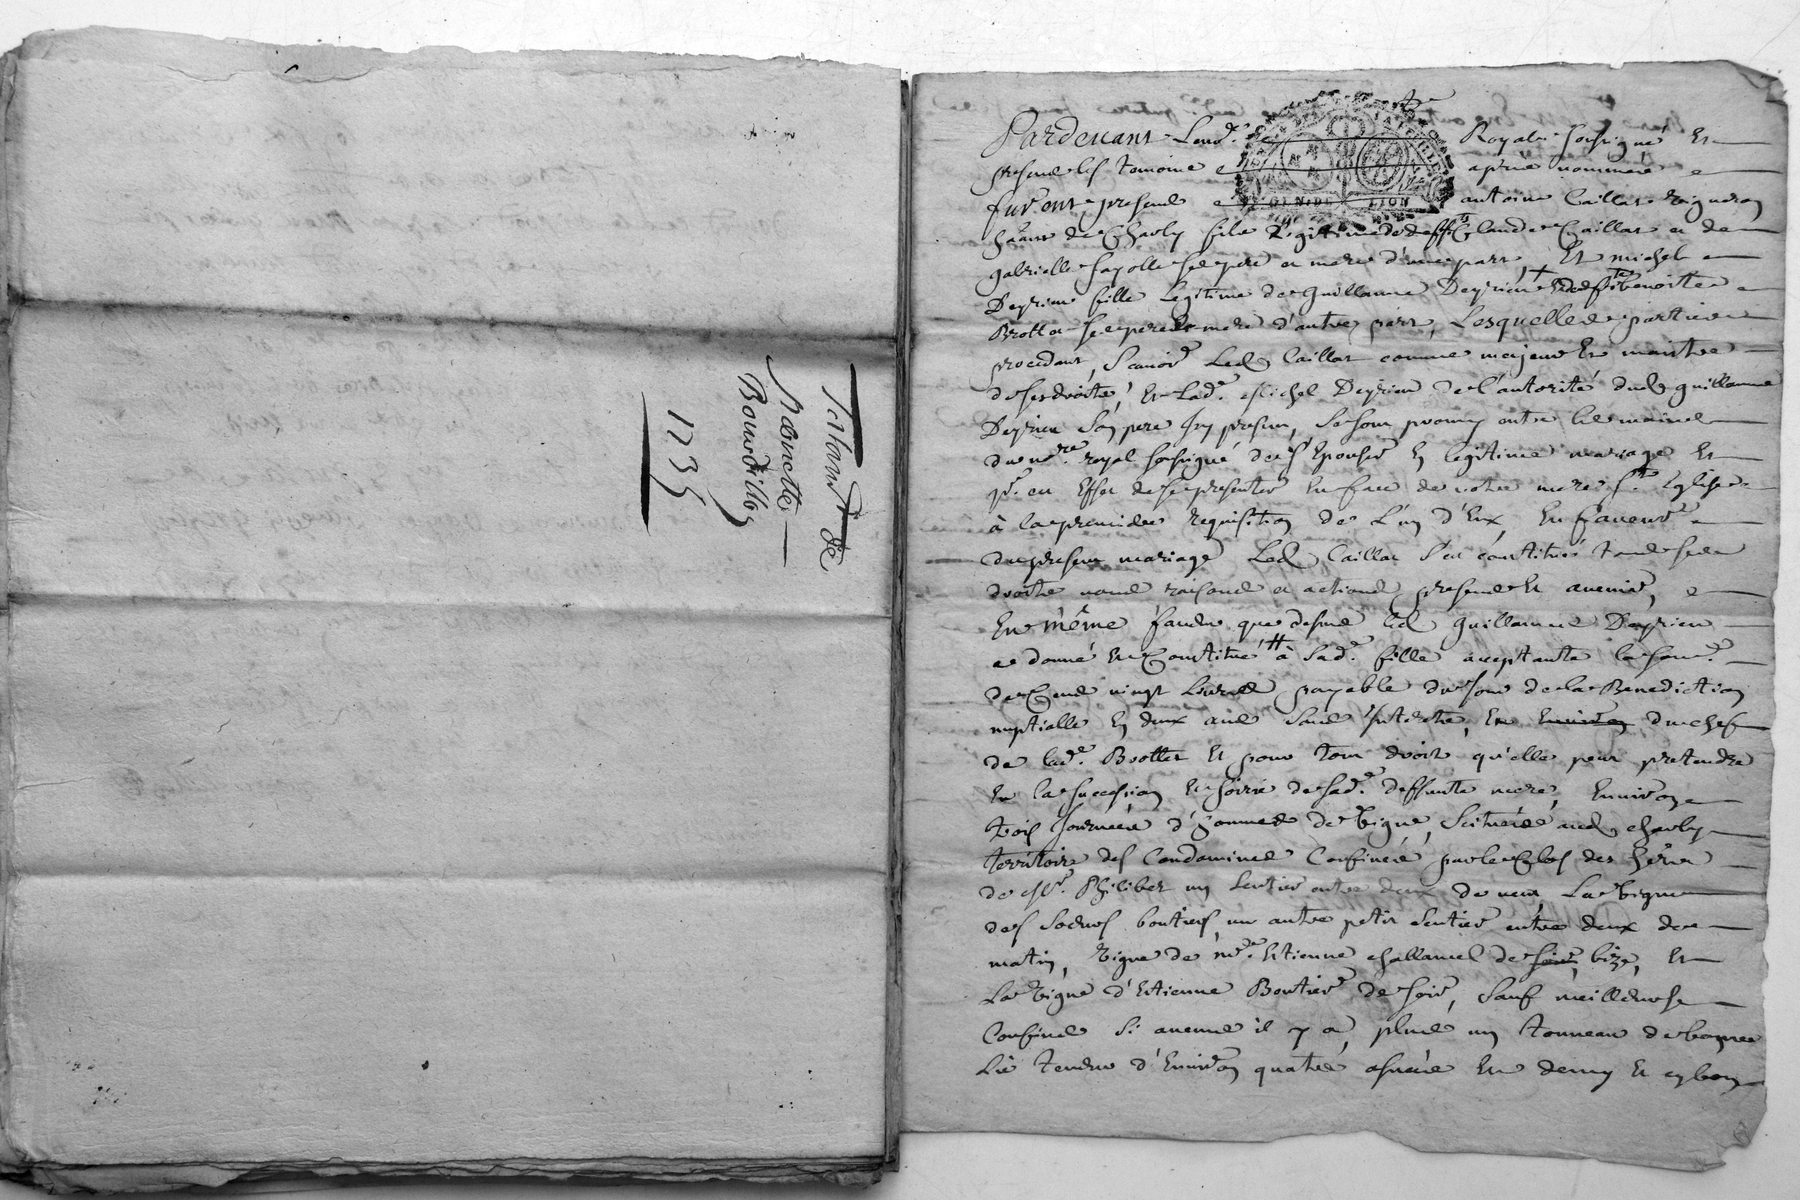 Testament de
Nanette
Bourdillon
1735
Pardevant Le no.re Royal soussigné Et
presence les temoins apres nommes
furent presents antoine Caillat Vigneron
de Charly fils Legitime de deffts Claude Caillat et de
gabrielle fayolle ses pere et mere d'une part, Et michel
Deyrieu fille Legitime de Guillaume Deyrieu + benoite
Brottet ses pere et mere d'autre part, Lesquelles parties
procedant, scavoir Led. Caillat comme majeur Et maistre
de ses droits, Et Lad.e Michel Deyrieu de l'autorité dud. guillaume
Deyrieu son pere Icy present, se sont promis entre les mains
du no.re royal soussigné de s'Epouser En legitime mariage Et
p.r cet Effet de se presenter En face de notre mere S.te Eglise
à la premiere requisition de L'un d'Eux, En faveur
du present mariage Led. Caillat s'est constitué tous ses
droits noms raisons et actions presents Et avenir,
En même faveur que dessus led. Guillaume Deyrieu
a donné Et Constitué # à sad.e fille acceptante la som.e
de Cent vingt Livres payable du jour de la Benediction
nuptialle En deux ans sans Interets, Et du chef
de lad.e Brottet Et pour tous droits qu'elle peut pretendre
En la succession Et hoirie de sad.e deffunte mere, Environ
trois Journées d'hommes de Vigne, scituées aud. charly
territoire des Condamines Confinée par le Clos des hers
de M.r Philibert un sentier entre deux de vent, La vigne
des sœurs boutier, un autre petit sentier entre deux de
matin, Vigne de m.re Estienne challamel de soir, bize, Et
La Vigne d'Estienne Boutier de soir, sauf meilleurs
Confins si aucuns il y a, plus un tonneau de
Lié tenant d'Environ quatre asnées Et demy Et en bon